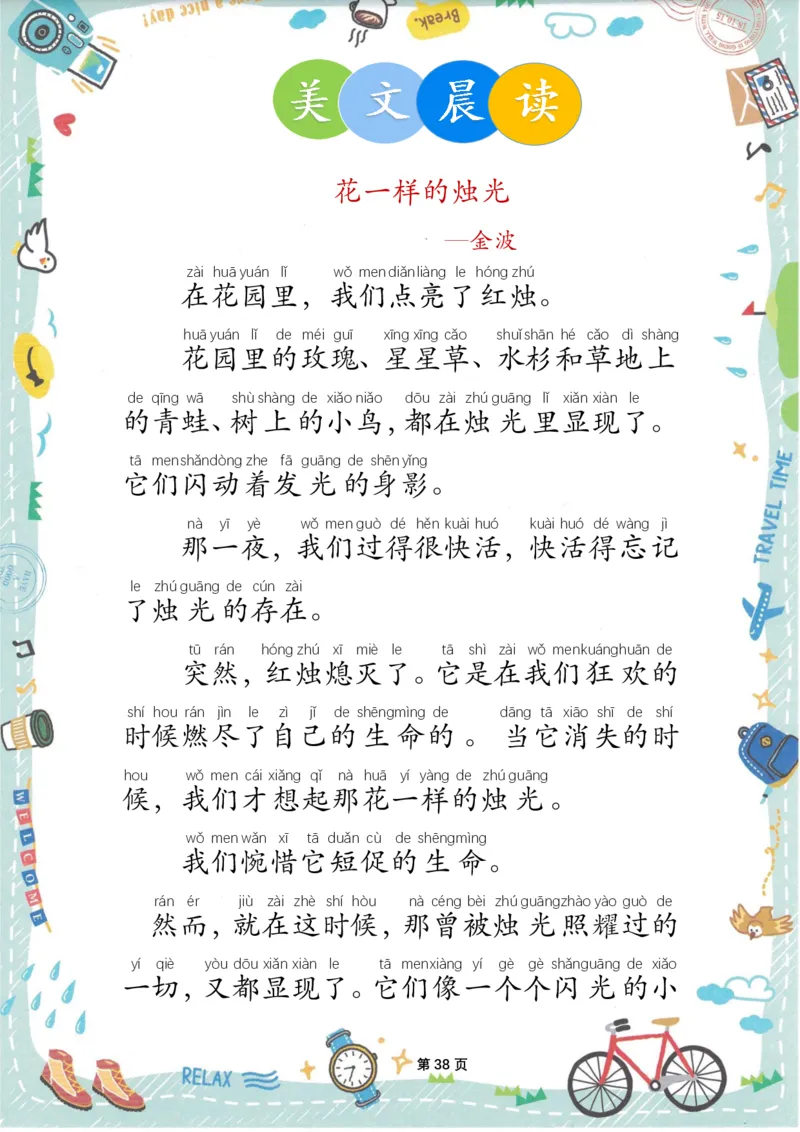 Have a nice day!
Break.
美文晨读
花一样的烛光
—金波
zài huā yuán lǐ wǒ men diǎn liàng le hóng zhú
在花园里，我们点亮了红烛。
huā yuán lǐ de méi guī xīng xīng cǎo shuǐ shān hé cǎo dì shàng
花园里的玫瑰、星星草、水杉和草地上
de qīng wā shù shàng de xiǎo niǎo dōu zài zhú guāng lǐ xiǎn xiàn le
的青蛙、树上的小鸟，都在烛光里显现了。
tā men shǎn dòng zhe fā guāng de shēn yǐng
它们闪动着发光的身影。
nà yī yè wǒ men guò dé hěn kuài huó kuài huó dé wàng jì
那一夜，我们过得很快活，快活得忘记
le zhú guāng de cún zài
了烛光的存在。
tū rán hóng zhú xī miè le tā shì zài wǒ men kuáng huān de
突然，红烛熄灭了。它是在我们狂欢的
shí hou rán jìn le zì jǐ de shēng mìng de dāng tā xiāo shī de shí
时候燃尽了自己的生命的。当它消失的时
hou wǒ men cái xiǎng qǐ nà huā yí yàng de zhú guāng
候，我们才想起那花一样的烛光。
wǒ men wǎn xī tā duǎn cù de shēng mìng
我们惋惜它短促的生命。
rán ér jiù zài zhè shí hòu nà céng bèi zhú guāng zhào yào guò de
然而，就在这时候，那曾被烛光照耀过的
yí qiè yòu dōu xiǎn xiàn le tā men xiàng yí gè gè shǎn guāng de xiǎo
一切，又都显现了。它们像一个个闪光的小
TRAVEL TIME
WELCOME
RELAX
第 38 页